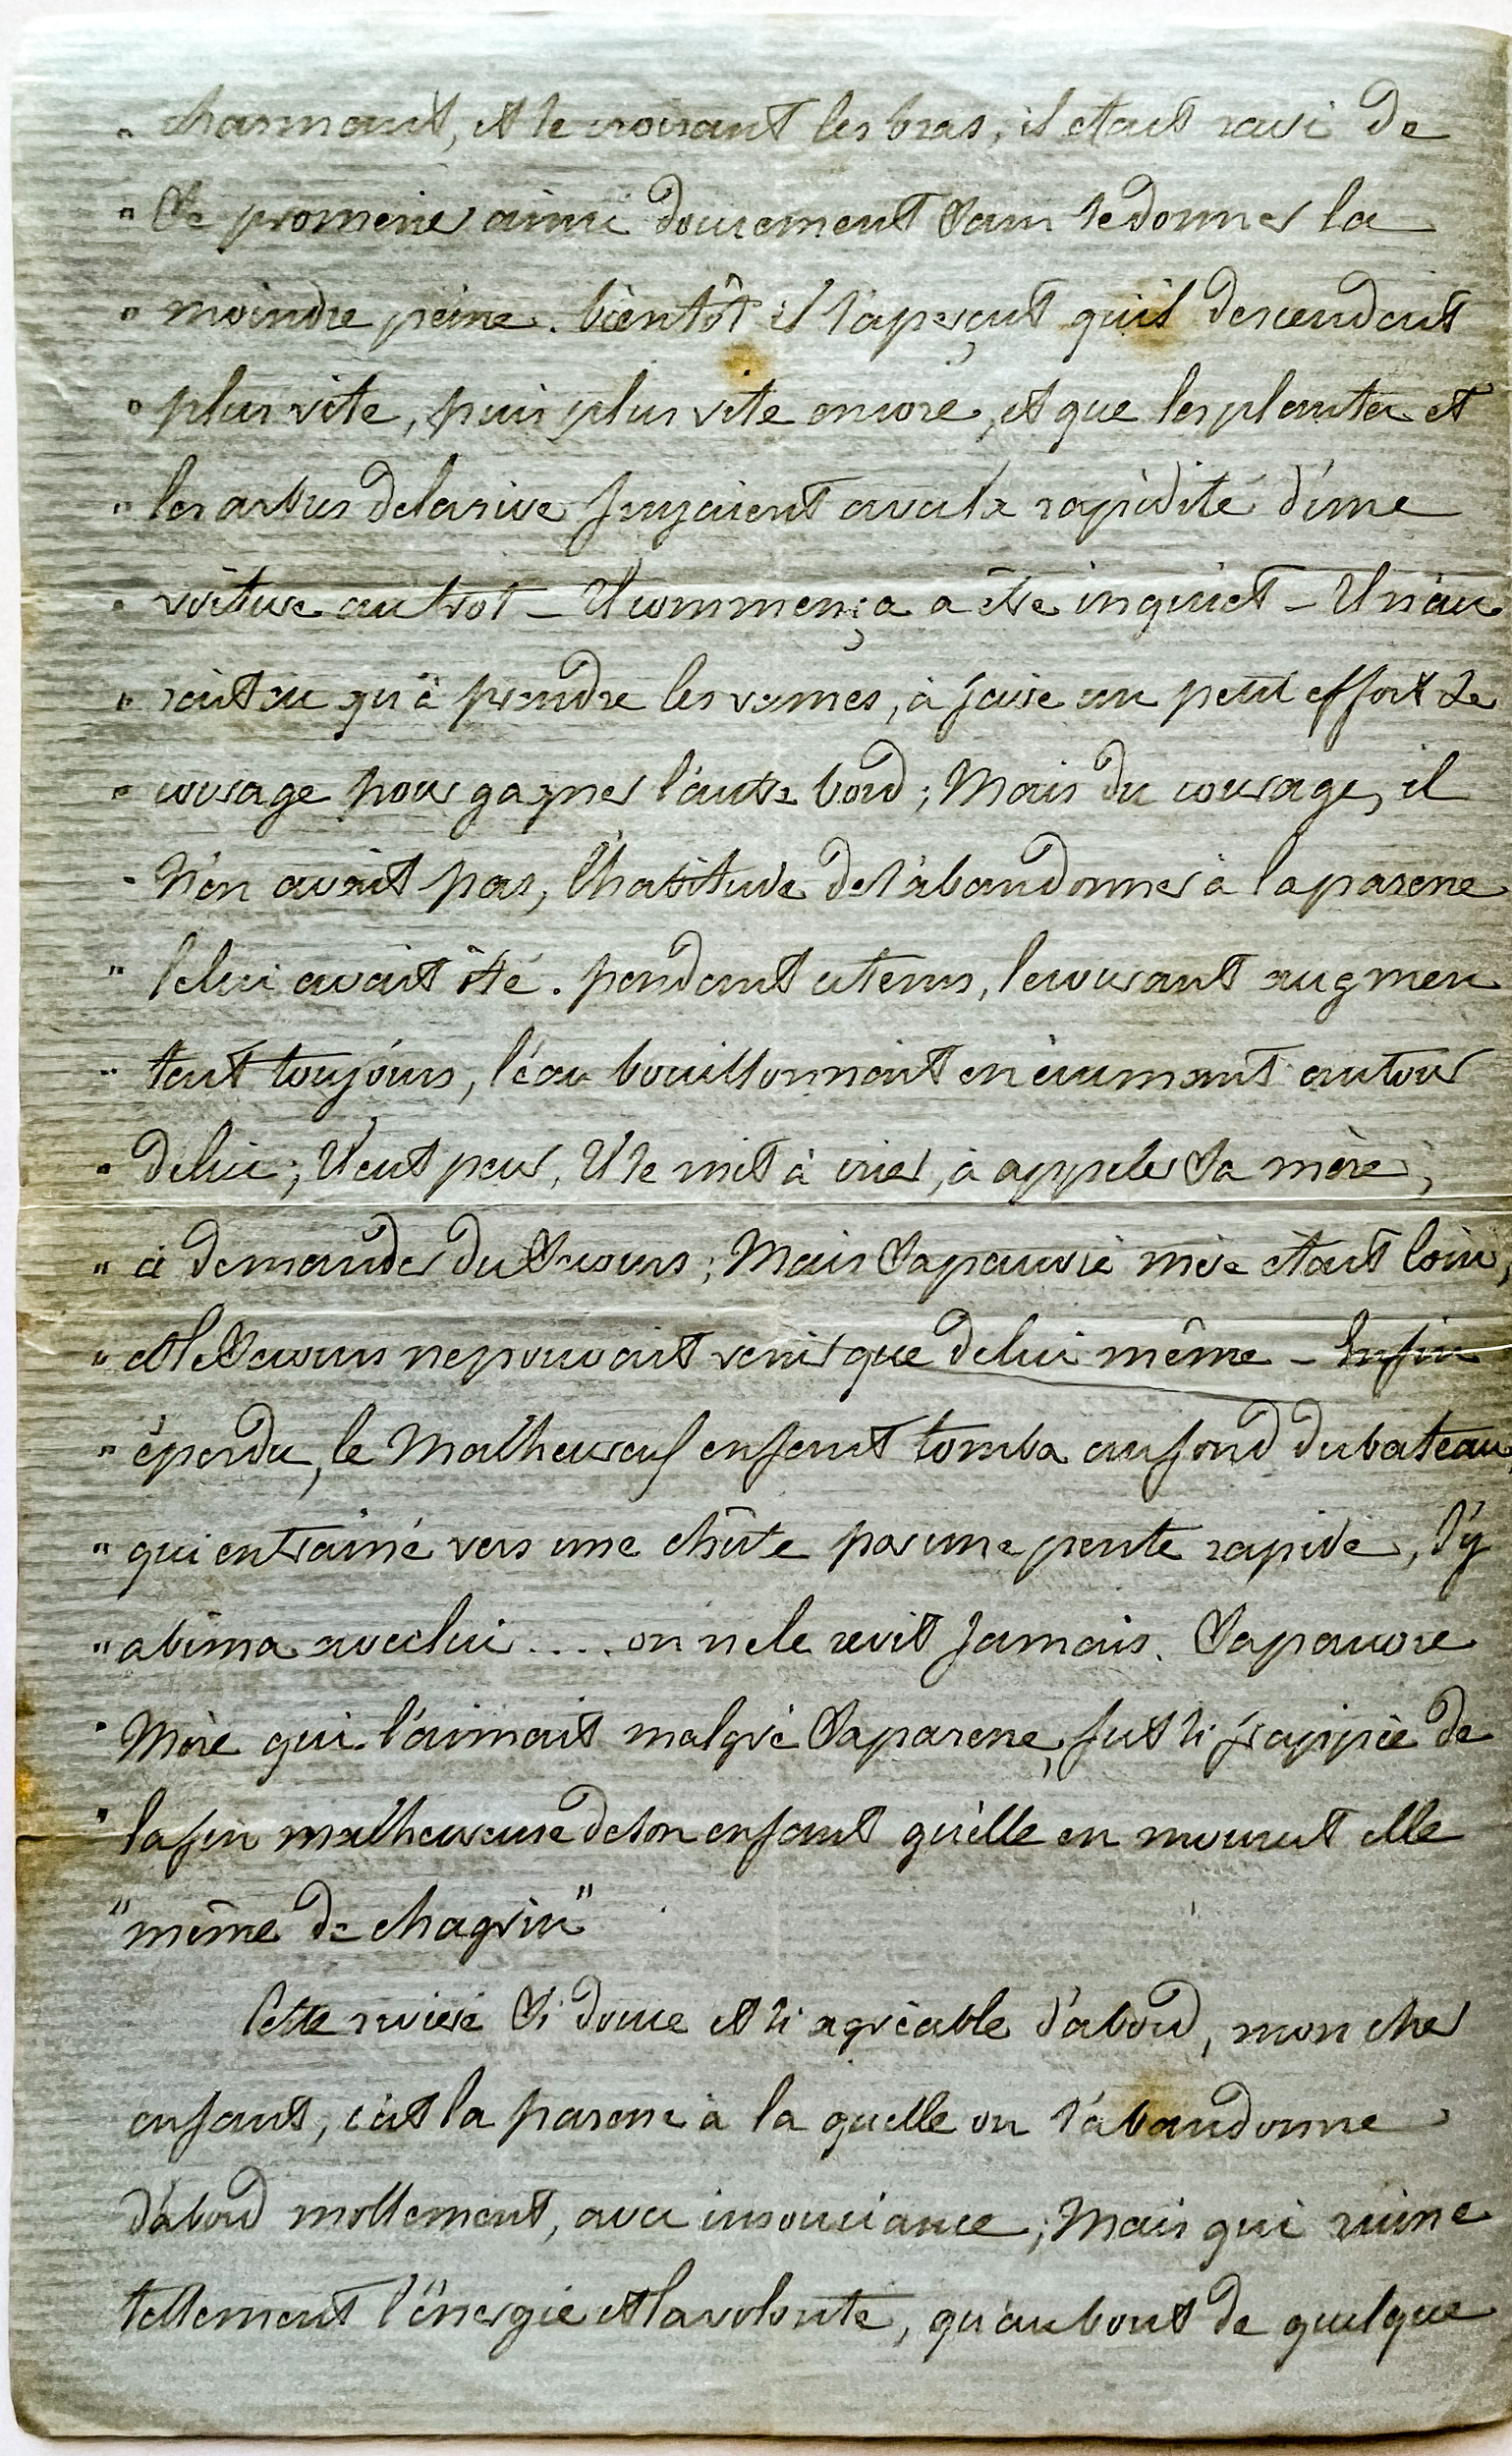 " charmant, et se croisant les bras, il etait ravi de
" se promener ainsi doucement sans se donner la
" moindre peine. bientôt il s'aperçut qu'il descendait
" plus vite, puis plus vite encore, et que les plantes et
" les arbres de la rive fuyaient avec la rapidité d'une
" voiture au trot – Il commença a être inquiet – Il n'au
" rait eu qu'à prendre les rames, à faire un petit effort de
" courage pour gagner l'autre bord; Mais du courage, il
" N'en avait pas, l'habitude de s'abandonner à la paresse
" le lui avait ôté. pendant ce tems, le courant augmen
" tait toujours, l'eau bouillonnait en écumant autour
" de lui; Il eut peur, Il se mit à crier, à appeler Sa mère,
" à demander du Secours; Mais Sa pauvre mère etait loin,
" et le Secours ne pouvait venir que de lui même – Enfin
" éperdu, le Malheureux enfant tomba au fond du bateau
" qui entrainé vers une chûte par une pente rapide, s'y
" abima avec lui .... on ne le revit Jamais. Sa pauvre
" Mère qui l'aimait malgré Sa paresse, fut si frappée de
" la fin malheureuse de son enfant qu'elle en mourut elle
" même de chagrin"
Cette rivière Si douce et si agréable d'abord, mon cher
enfant, c'est la paresse à la quelle on s'abandonne
d'abord mollement, avec insouciance; Mais qui ruine
tellement l'énergie et la volonté, qu'au bout de quelque